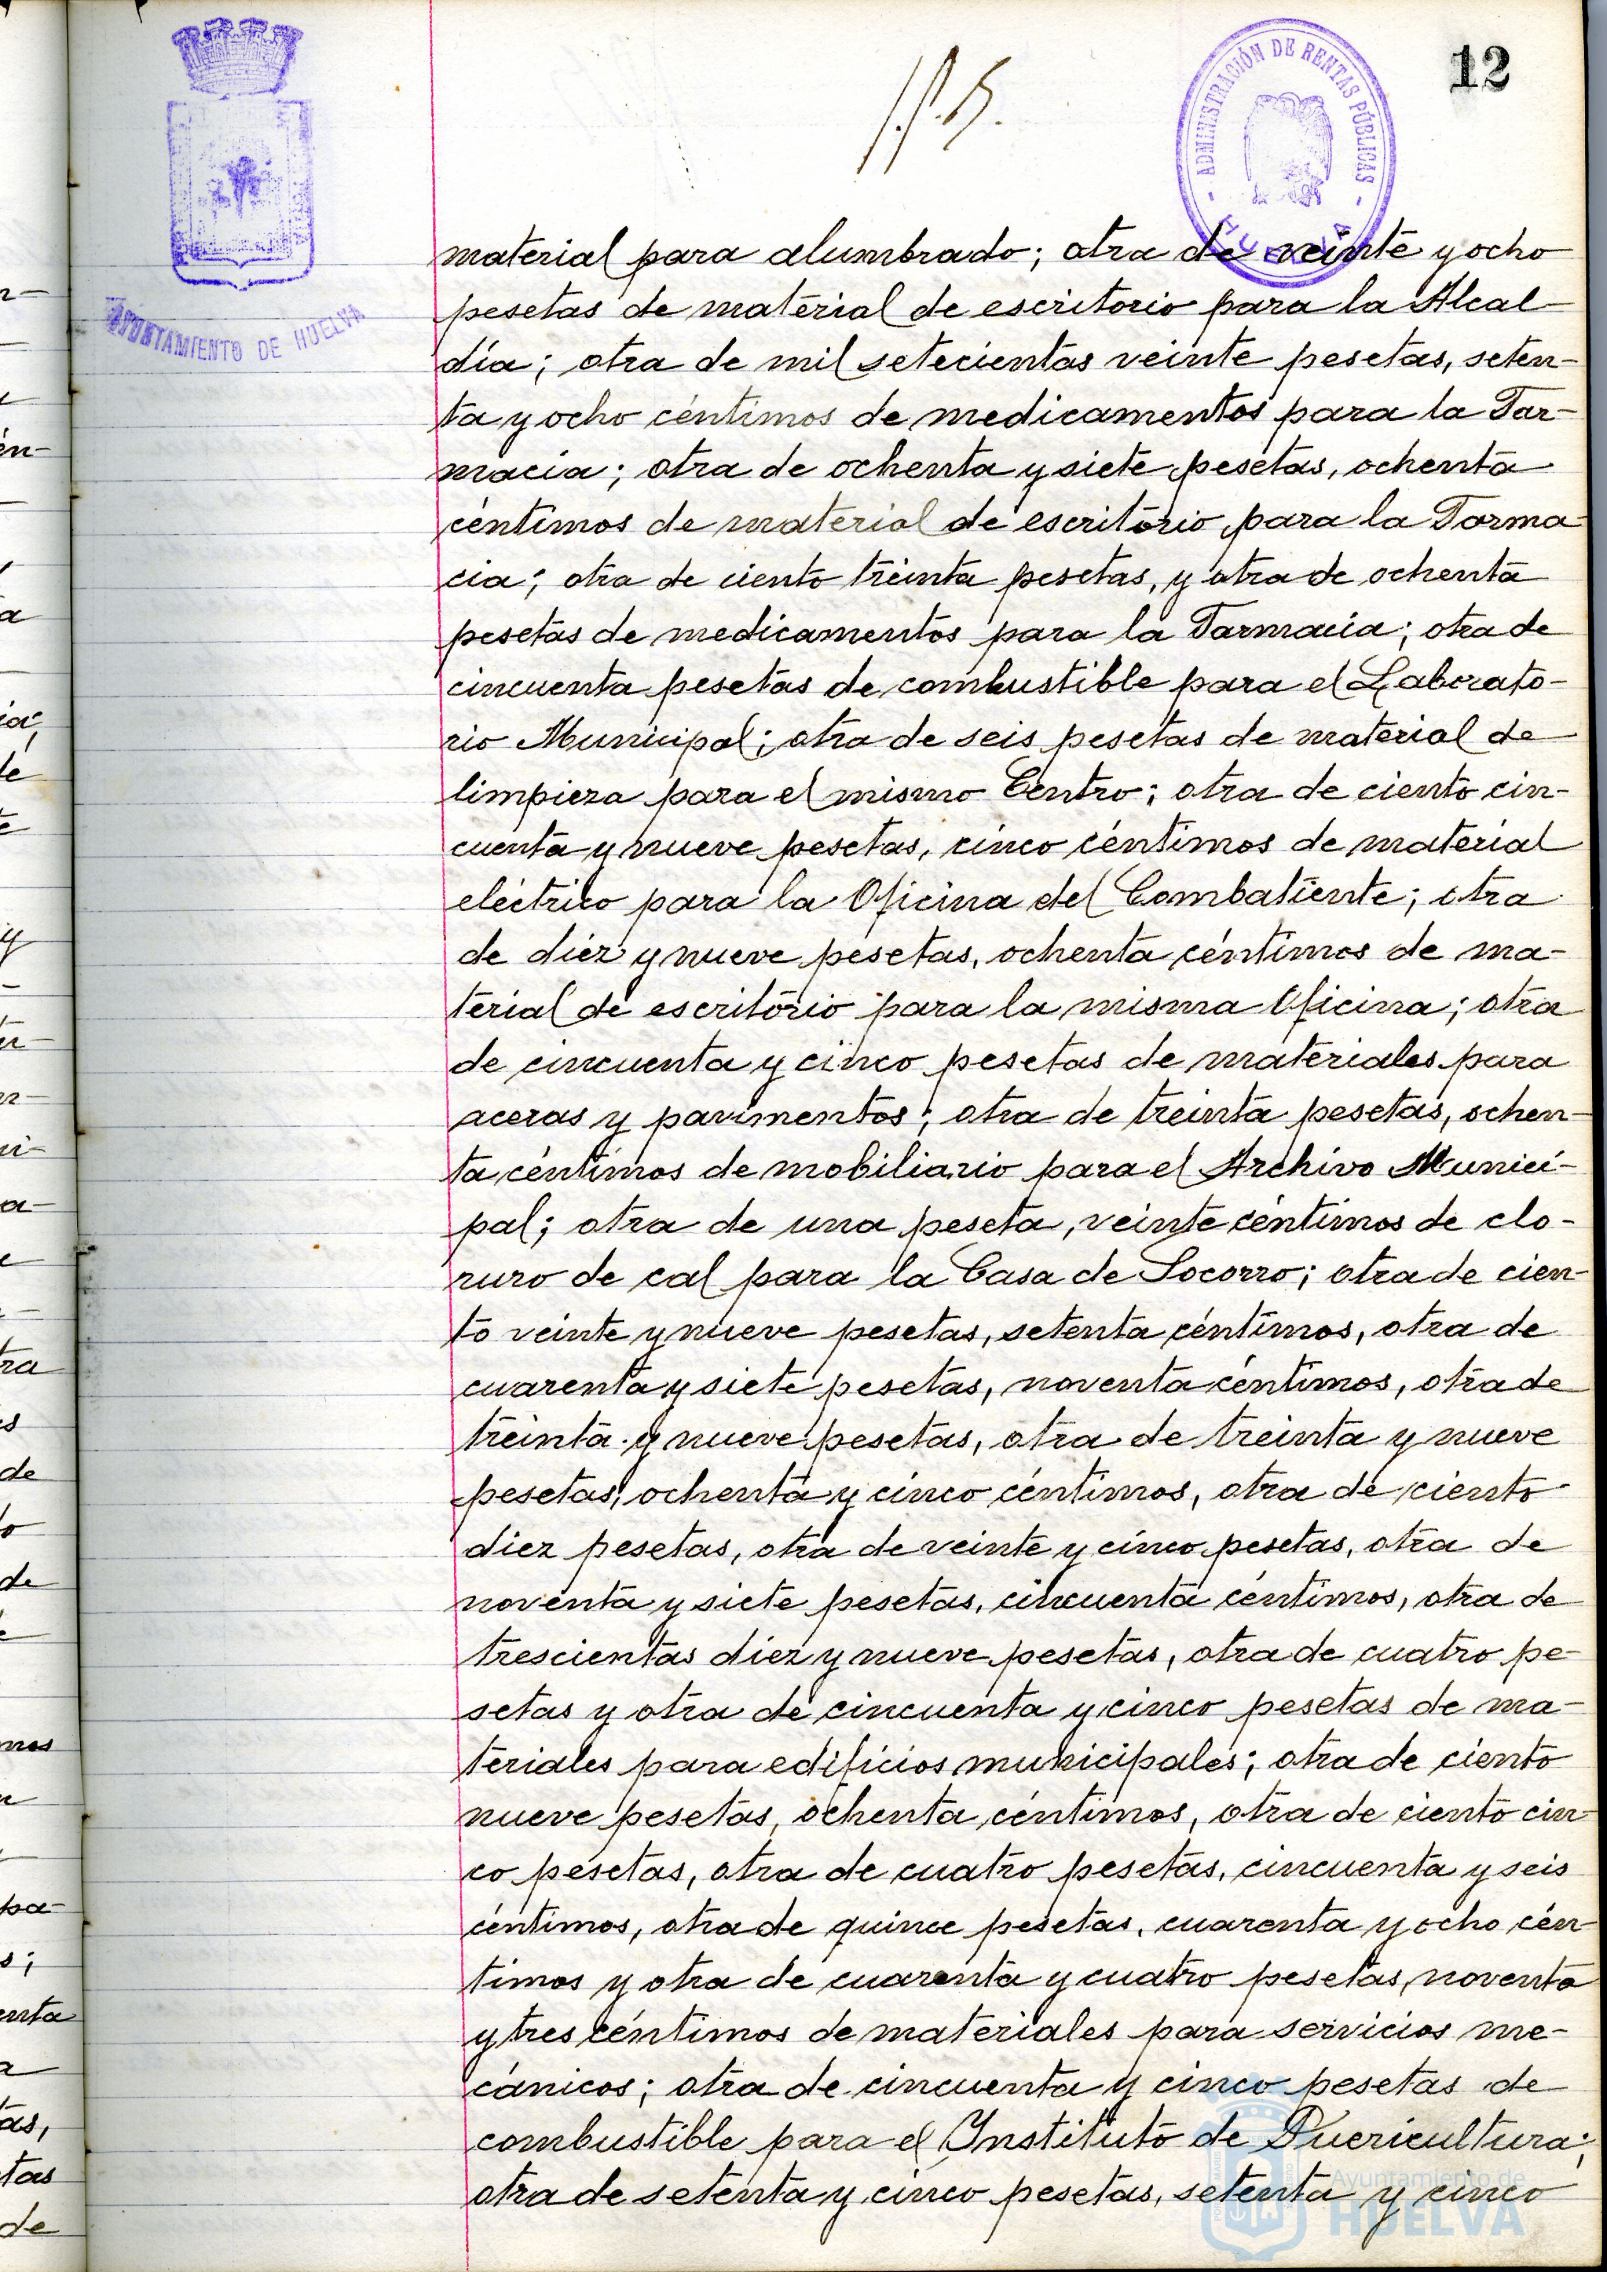 12
ADMINISTRACIÓN DE RENTAS PÚBLICAS
HUELVA
AYUNTAMIENTO DE HUELVA
material para alumbrado; otra de veinte y ocho
pesetas de material de escritorio para la Alcal-
día; otra de mil setecientas veinte pesetas, seten-
ta y ocho céntimos de medicamentos para la Far-
macia; otra de ochenta y siete pesetas, ochenta
céntimos de material de escritorio para la Farma
cia; otra de ciento treinta pesetas, y otra de ochenta
pesetas de medicamentos para la Farmacia; otra de
cincuenta pesetas de combustible para el Laborato-
rio Municipal; otra de seis pesetas de material de
limpieza para el mismo Centro; otra de ciento cin-
cuenta y nueve pesetas, cinco céntimos de material
eléctrico para la Oficina del Combatiente; otra
de diez y nueve pesetas, ochenta céntimos de ma-
terial de escritorio para la misma Oficina; otra
de cincuenta y cinco pesetas de materiales para
aceras y pavimentos; otra de treinta pesetas, ochen-
ta céntimos de mobiliario para el Archivo Munici-
pal; otra de una peseta, veinte céntimos de clo-
ruro de cal para la Casa de Socorro; otra de cien-
to veinte y nueve pesetas, setenta céntimos, otra de
cuarenta y siete pesetas, noventa céntimos, otra de
treinta y nueve pesetas, otra de treinta y nueve
pesetas, ochenta y cinco céntimos, otra de ciento
diez pesetas, otra de veinte y cinco pesetas, otra de
noventa y siete pesetas, cincuenta céntimos, otra de
trescientas diez y nueve pesetas, otra de cuatro pe-
setas y otra de cincuenta y cinco pesetas de ma-
teriales para edificios municipales; otra de ciento
nueve pesetas, ochenta céntimos, otra de ciento cin-
co pesetas, otra de cuatro pesetas, cincuenta y seis
céntimos, otra de quince pesetas, cuarenta y ocho cén-
timos y otra de cuarenta y cuatro pesetas, noventa
y tres céntimos de materiales para servicios me-
cánicos; otra de cincuenta y cinco pesetas de
combustible para el Instituto de Puericultura;
otra de setenta y cinco pesetas, setenta y cinco
Ayuntamiento de
HUELVA